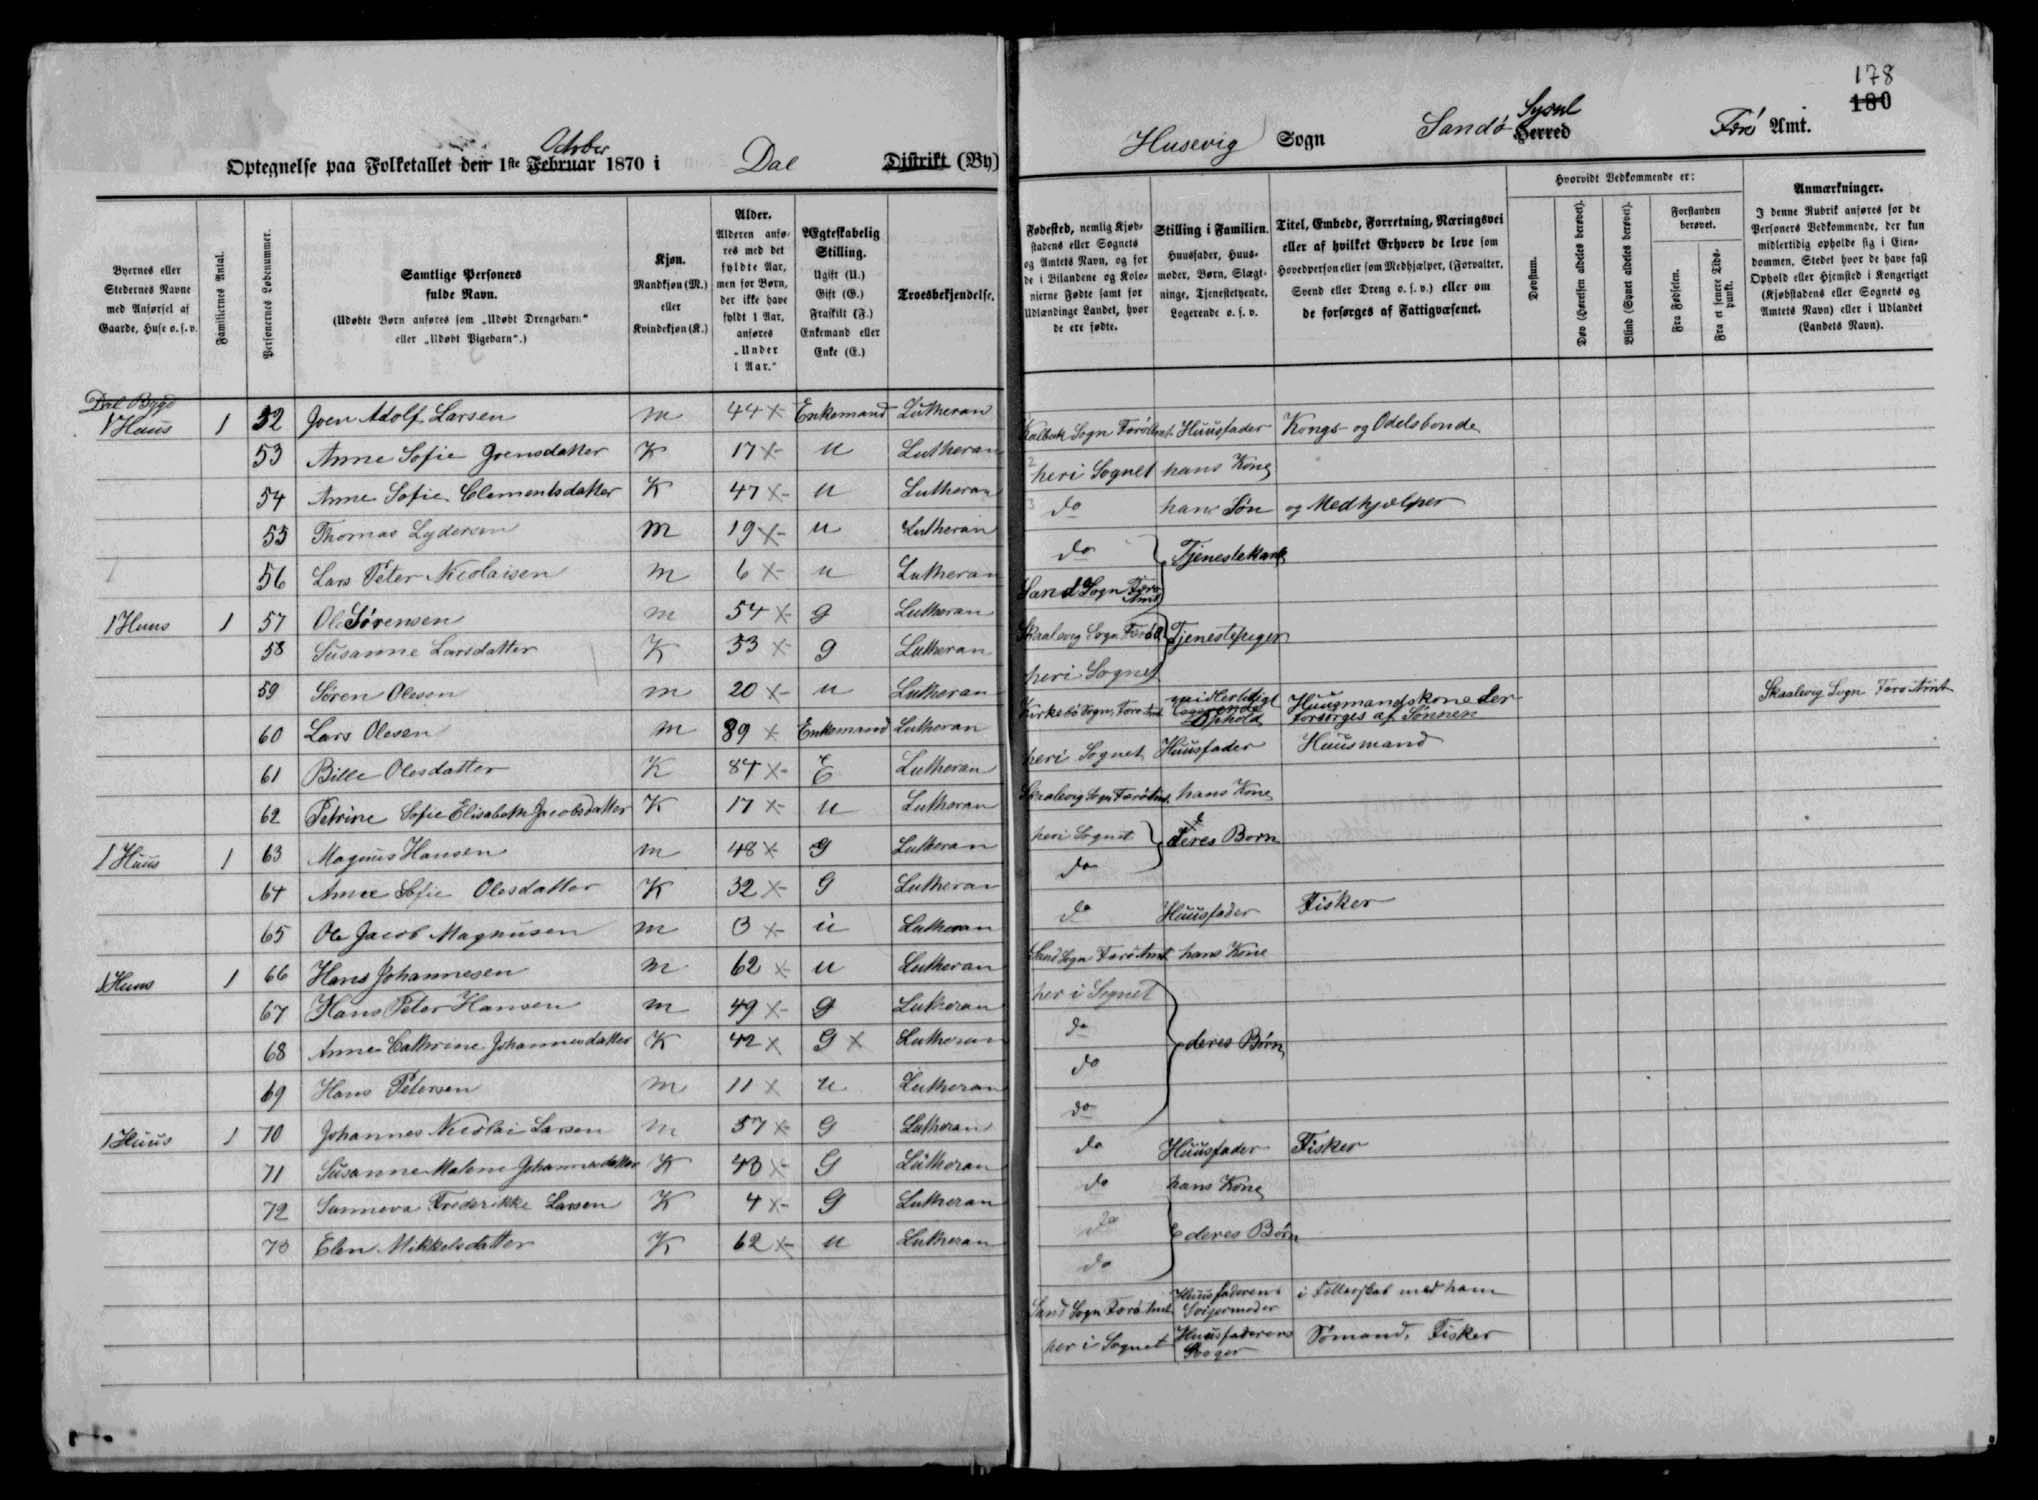 Optegnelse paa Folketallet den 1ste Februar 1870 i
October
Dal
Distrikt (By)
Byernes eller
Stedernes Navne
med Anførsel af
Gaarde, Huse o. s. v.
Familiernes Antal.
Personernes Løbenummer.
Samtlige Personers
fulde Navn.
(Udøbte Børn anføres som „Udøbt Drengebarn“
eller „Udøbt Pigebarn“.)
Kjøn.
Mandkjøn (M.)
eller
Kvindekjøn (K.)
Alder.
Alderen anfø-
res med det
fyldte Aar,
men for Børn,
der ikke have
fyldt 1 Aar,
anføres
„Under
1 Aar.“
Ægteskabelig
Stilling.
Ugift (U.)
Gift (G.)
Fraskilt (F.)
Enkemand eller
Enke (E.)
Troesbekjendelse.
Dal Bygd
1 Huus 1 52 Joen Adolf Larsen m 44 x Enkemand Lutheran
53 Anne Sofie Joensdatter K 17 x u Lutheran
54 Anne Sofie Clementsdatter K 47 x u Lutheran
55 Thomas Lydersen m 19 x u Lutheran
56 Lars Peter Nicolaisen m 6 x u Lutheran
1 Huus 1 57 Ole Sørensen m 54 x g Lutheran
58 Susanne Larsdatter K 53 x g Lutheran
59 Søren Olesen m 20 x u Lutheran
60 Lars Olesen m 89 x Enkemand Lutheran
61 Bille Olesdatter K 87 x E Lutheran
62 Petrine Sofie Elisabeth Jacobsdatter K 17 x u Lutheran
1 Huus 1 63 Magnus Hansen m 48 x g Lutheran
64 Anne Sofie Olesdatter K 32 x G Lutheran
65 Ole Jacob Magnusen m 3 x u Lutheran
1 Huus 1 66 Hans Johannesen m 62 x u Lutheran
67 Hans Peter Hansen m 49 x g Lutheran
68 Anne Cathrine Johannesdatter K 42 x G x Lutheran
69 Hans Petersen m 11 x u Lutheran
1 Huus 1 70 Johannes Nicolai Larsen m 57 x G Lutheran
71 Susanne Malene Johannesdatter K 43 x G Lutheran
72 Sanneva Frederikke Larsen K 4 x G Lutheran
73 Elen Mikkelsdatter K 62 x u Lutheran
178
180
Husevig Sogn
Sandø Herred
Syssel
Færø Amt.
Fødested, nemlig Kjøb-
stadens eller Sognets
og Amtets Navn, og for
de i Bilandene og Kolo-
nierne Fødte samt for
Udlændinge Landet, hvor
de ere fødte.
Stilling i Familien.
Huusfader, Huus-
moder, Børn, Slægt-
ninge, Tjenestetyende,
Logerende o. s. v.
Titel, Embede, Forretning, Næringsvei
eller af hvilket Erhverv de leve som
Hovedperson eller som Medhjælper, (Forvalter,
Svend eller Dreng o. s. v.) eller om
de forsørges af Fattigvæsenet.
Hvorvidt Vedkommende er:
Døvstum.
Døv (Hørelsen aldeles berøvet).
Blind (Synet aldeles berøvet).
Forstanden
berøvet.
Fra Fødselen.
Fra et senere Tids-
punkt.
Anmærkninger.
I denne Rubrik anføres for de
Personers Vedkommende, der kun
midlertidig opholde sig i Eien-
dommen, Stedet hvor de have fast
Ophold eller Hjemsted i Kongeriget
(Kjøbstadens eller Sognets og
Amtets Navn) eller i Udlandet
(Landets Navn).
Kalbak Sogn Færø Amt Huusfader Kongs- og Odelsbonde
heri Sognet hans Kone
do hans Søn og Medhjælper
do Tjenestekarle
Sand Sogn Færø Amt
Skaalevig Sogn Færø A Tjenestepiger
heri Sognet
Kirkebø Sogn, Færø Amt midlertidigt logerende Ophold Huusmandskone der forsørges af Sønnen Skaalevig Sogn Færø Amt
heri Sognet Huusfader Huusmand
Skaalevig Sogn Færø Amt hans Kone
heri Sognet deres Børn
do
do Huusfader Fisker
Sand Sogn Færø Amt hans Kone
her i Sognet
do deres Børn
do
do
do Huusfader Fisker
do hans Kone
do deres Børn
do
Sand Sogn Færø Amt Huusfaderens Svigermoder i Fællesskab med ham
her i Sognet Huusfaderens Svoger Sømand, Fisker